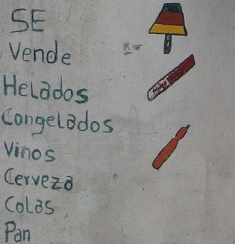 SE
Vende
Helados
Congelados
Vinos
Cerveza
Colas
Pan